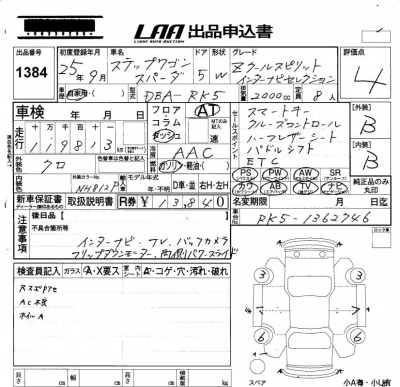 LAA 出品申込書
LIGHT AUTO AUCTION
出品番号 初度登録年月 車名 ドア 形状 グレード 評価点
1384 25年9月 ステップワゴン スパーダ 5 W Zクールスピリット インターナビセレクション 4
車歴 自家用 型式 DBA-RK5 排気量 2000cc 定員 8人
車検 フロア コラム ダッシュ AT MTのみ記入
走行 11,9813
冷房 AAC
燃料 ガソリン・軽油
外装色 クロ
セールスポイント
スマートキー
クルーズコントロール
ハーフレザーシート
パドルシフト
ETC
【外装】 B
【内装】 B
PS PW AW SR
カワ AB TV ナビ
純正品のみ丸印
輸入車 年モデル・年式 年・不明 D車・並 右H・左H
新車保証書 取扱説明書 R券 ¥13,840
名変期限 月 日迄
RK5-1362746
注意事項 後日品【 】
不具合箇所等
インターナビ、TV、バックカメラ
フリップダウンモニター、両側パワースライド
検査員記入 ガラス A・X要ス 室内シート A・コゲ・穴・汚れ・破れ
ホイルA
長さ cm 幅 cm 高さ cm 積載量 kg
3 3
6 6
スペア 小A有・小U有